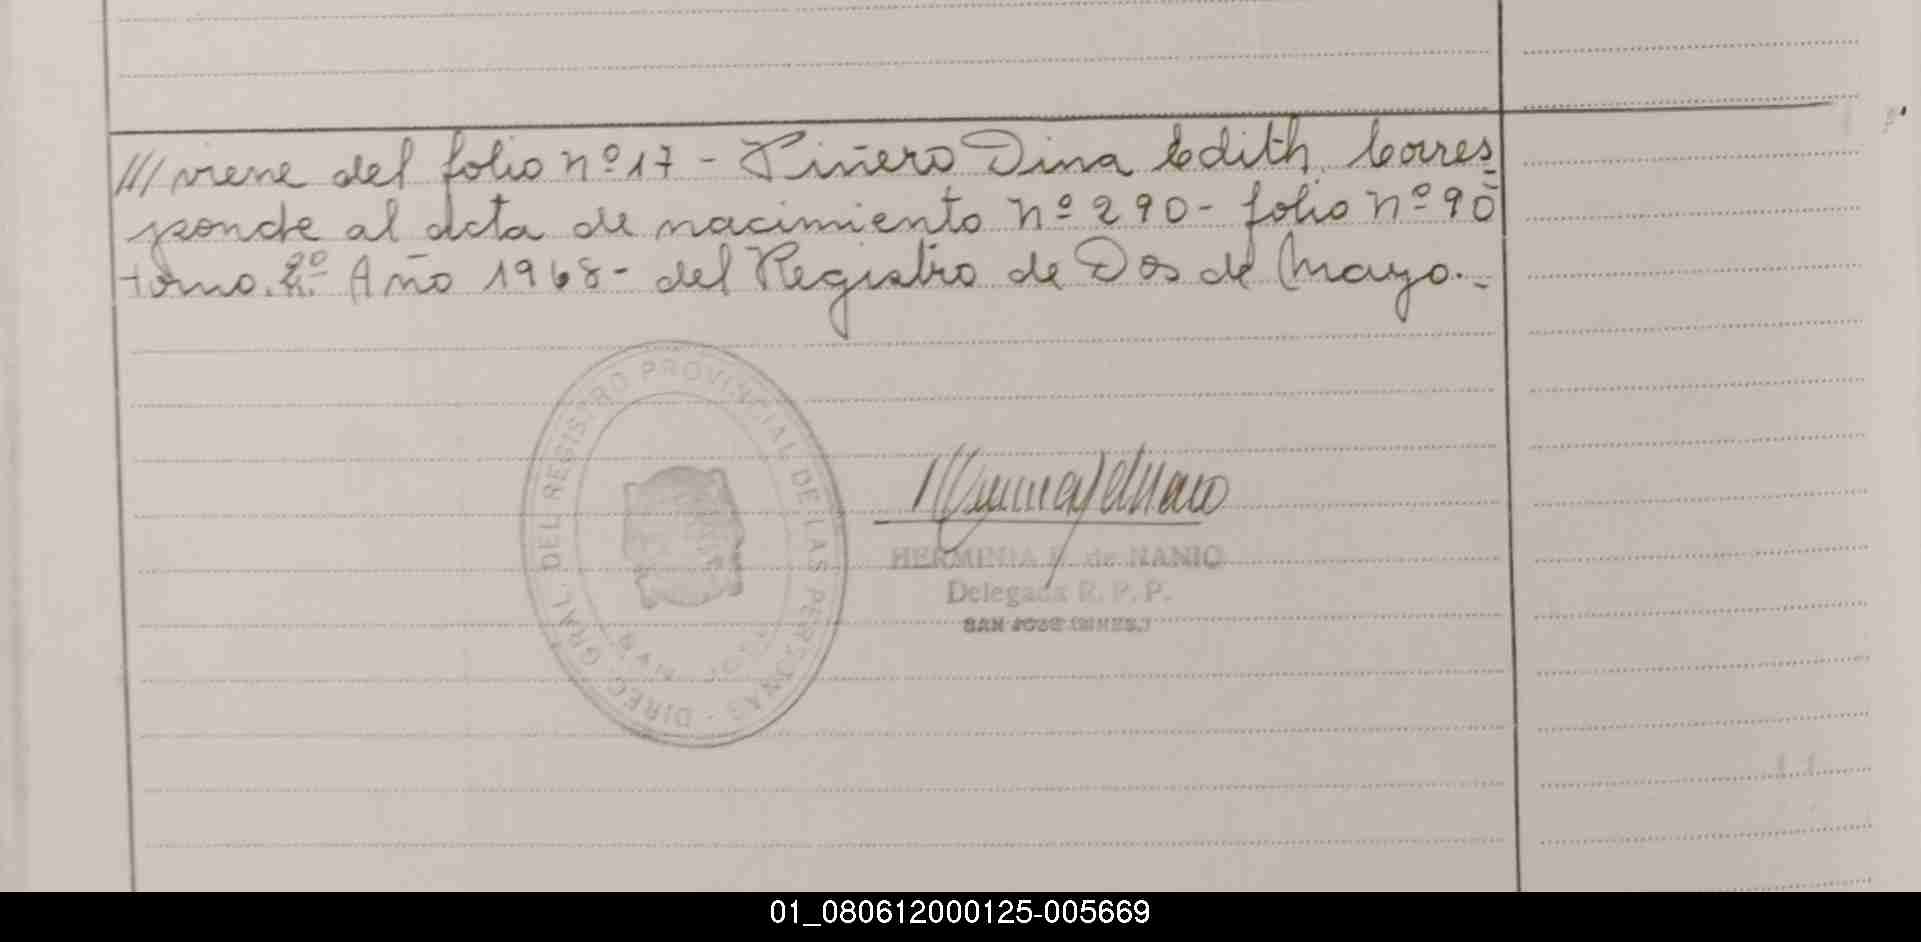 /// viene del folio nº 17 - Piñero Dina Edith. Corres
ponde al acta de nacimiento nº 290 - folio nº 90
tomo. 2º Año 1968 - del Registro de Dos de Mayo. -
DIREC. GRAL. DEL REGISTRO PROVINCIAL DE LAS PERSONAS -
SAN JOSE
HERMINIA de NANIO
Delegada R. P. P.
SAN JOSE (MNES.)
01_080612000125-005669